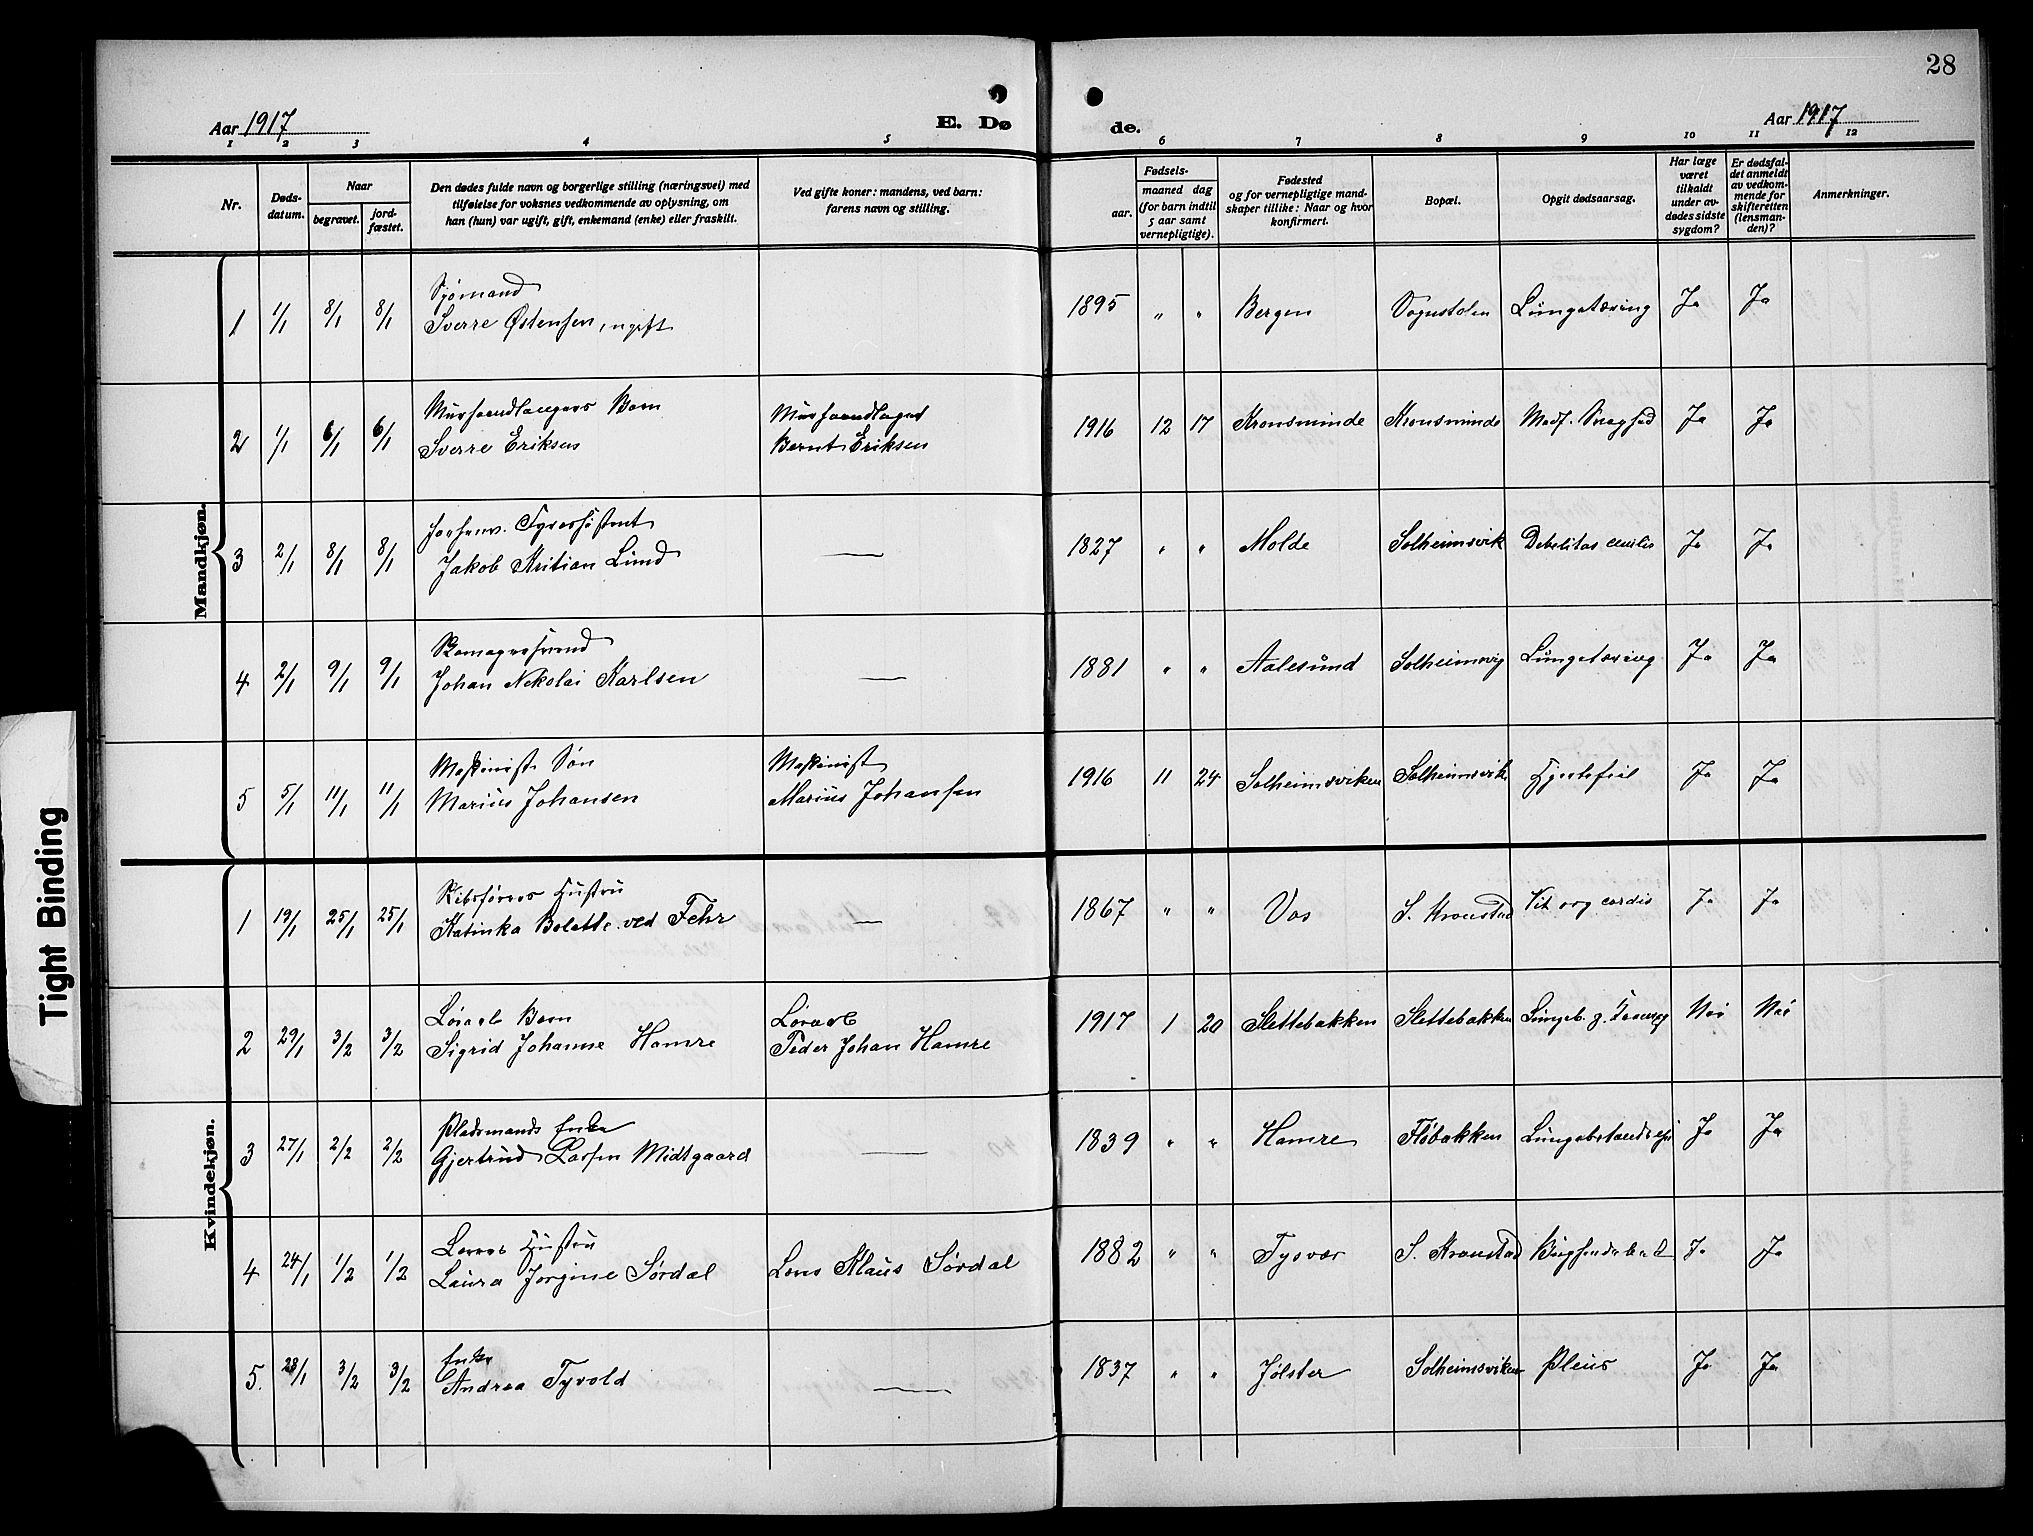 28
Aar 1917
E. Dø
de.
Aar 1917
1 2 3 4 5 6 7 8 9 10 11 12
Nr.
Døds-
datum.
Naar
begravet.
jord-
fæstet.
Den dødes fulde navn og borgerlige stilling (næringsvei) med
tilføielse for voksnes vedkommende av oplysning, om
han (hun) var ugift, gift, enkemand (enke) eller fraskilt.
Ved gifte koner: mandens, ved barn:
farens navn og stilling.
Fødsels-
aar.
maaned dag
(for barn indtil
5 aar samt
vernepligtige).
Fødested
og for vernepligtige mand-
skaper tillike: Naar og hvor
konfirmert.
Bopæl.
Opgit dødsaarsag.
Har læge
været
tilkaldt
under av-
dødes sidste
sygdom?
Er dødsfal-
det anmeldt
av vedkom-
mende for
skifteretten
(lensman-
den)?
Anmerkninger.
Mandkjøn.
Sjømand
1 1/1 8/1 8/1 Sverre Østensen, ugift 1895 " " Bergen Vognstolen Lungetæring Ja Ja
Murhaandlangers Barn Murhaandlanger
2 1/1 6/1 6/1 Sverre Eriksen Bernt Eriksen 1916 12 17 Kronsminde Kronsminde Medf. Svaghed Ja Ja
3 2/1 8/1 8/1 Jakob Kritian Lund — 1827 " " Molde Solheimsvik Debilitas Ja Ja
4 2/1 9/1 9/1 Johan Nikolai Karlsen — 1881 " " Aalesund Solheimsvig Lungetæring Ja Ja
Maskinist Søn Maskinist
5 5/1 11/1 11/1 Marius Johansen Marius Johansen 1916 11 24 Solheimsviken Solheimsvik Hjertefeil Ja Ja
Kvindekjøn.
Skibsførers Hustru
1 19/1 25/1 25/1 Katinka Bolette ved Fehr — 1867 " " Vos S. Kronstad Vit org cordis Ja Ja
Løsarb Barn Løsarb
2 29/1 3/2 3/2 Sigrid Johanne Hamre Peder Johan Hamre 1917 1 20 Slettebakken Slettebakken Nei Nei
Pladsmands Enke
3 27/1 2/2 2/2 Gjertrud Larsen Midtgaard — 1839 " " Hamre Fløbakken Ja Ja
Hustru
4 24/1 1/2 1/2 Laura Jorgine Sørdal Klaus Sørdal 1882 " " Tysvær S. Kronstad Ja Ja
Enke
5. 28/1 3/2 3/2 Andrea Tyvold — 1837 " " Jølster Solheimsviken Ja Ja
Tight Binding